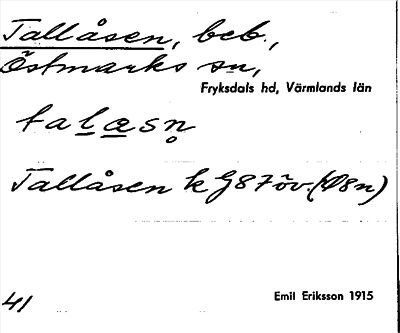 Tallåsen, beb.,
Östmarks sn,
Fryksdals hd, Värmlands län
talæsn̥
Tallåsen k G87öv. (Ø8n)
41
Emil Eriksson 1915